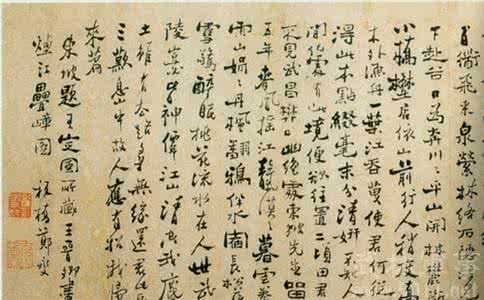 百衟飛来泉縈林絡石隐
下赴谷口為奔川川平山開林麓斷
小橋埜店依山前行人稍度喬
木外漁舟一葉江吞天使君何從
得此本點綴毫末分清妍不知人
間何處有此境便欲往置二頃田君
不見武昌樊口幽絶處東坡先生留
五年春風搖江天漠漠暮雲卷
雨山娟娟丹楓翻鴉伴水宿長松落
雪驚醉眠桃花流水在人世武
陵豈必皆神僊江山清空我塵
土雖有去路尋無緣還君此画
三歎息山中故人應有招我歸
来篇
東坡題王定國所藏王晉卿畫
煙江疊嶂圖 板橋鄭燮